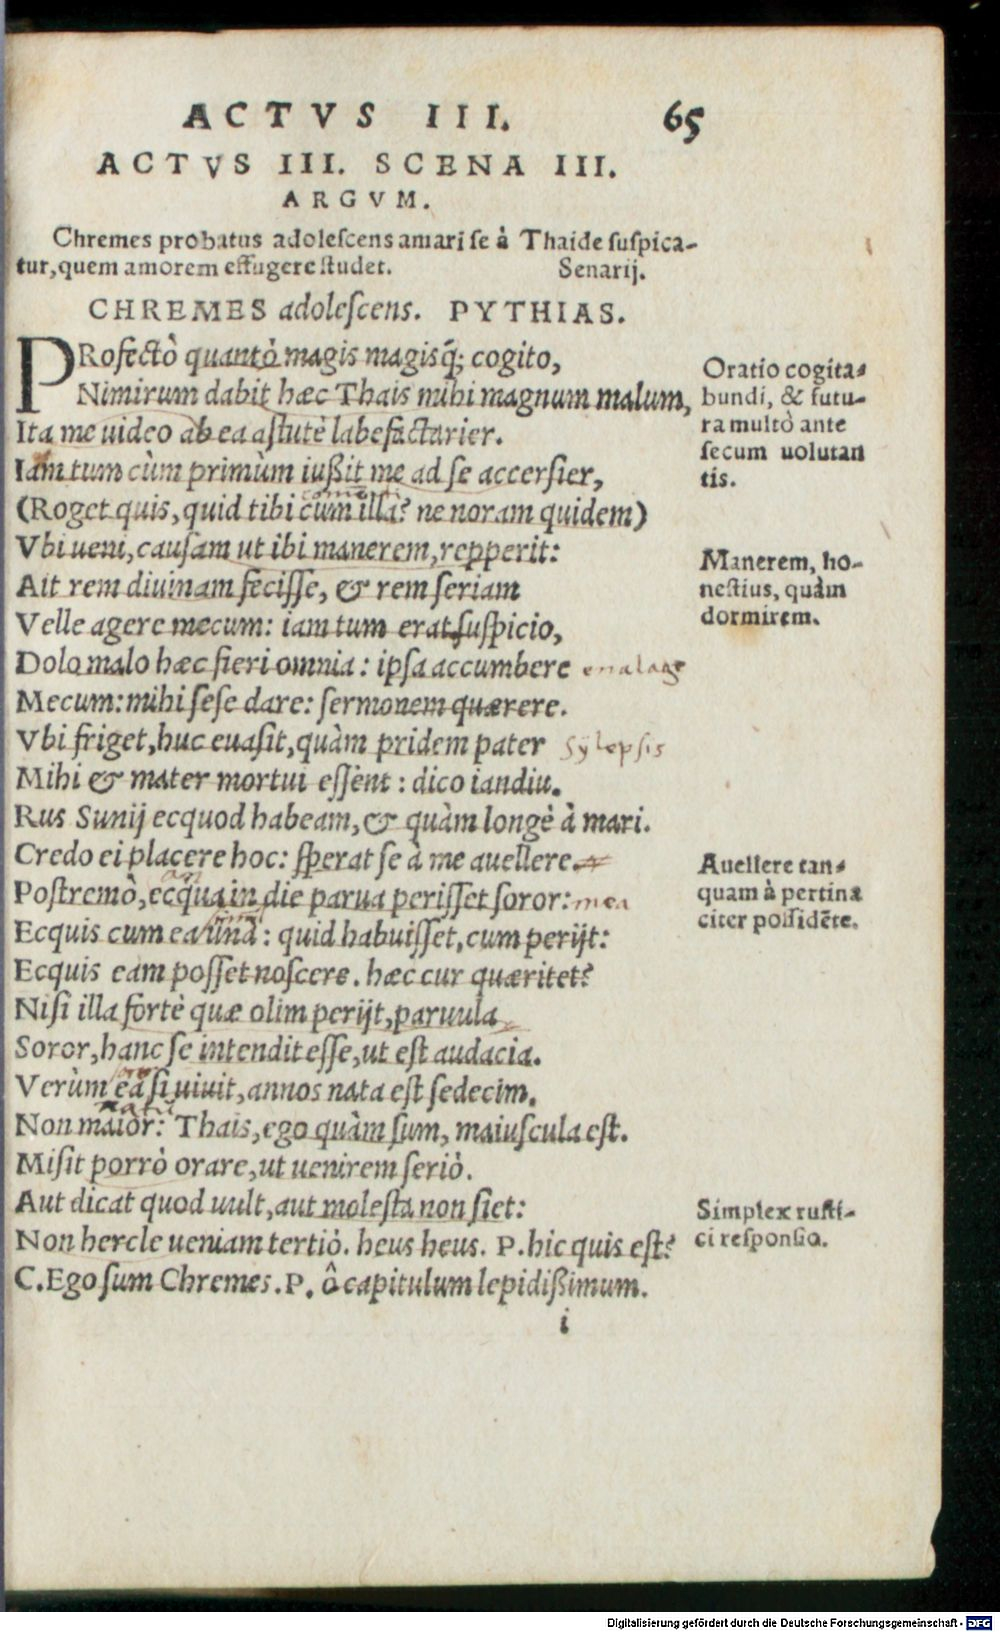 ACTVS III. 65
ACTVS III. SCENA III.
ARGVM.
Chremes probatus adolescens amari se à Thaide suspica-
tur, quem amorem effugere studet. Senarij.
CHREMES adolescens. PYTHIAS.
PRofectò quantò magis magisq́; cogito,
Nimirum dabit hæc Thais mihi magnum malum,
Ita me uideo ab ea astutè labefactarier.
Iam tum cùm primùm iußit me ad se accersier,
(Roget quis, quid tibi cum illa? ne noram quidem)
Vbi ueni, causam ut ibi manerem, repperit:
Ait rem diuinam fecisse, & rem seriam
Velle agere mecum: iam tum erat suspicio,
Dolo malo hæc fieri omnia: ipsa accumbere enalage
Mecum: mihi sese dare: sermonem quærere.
Vbi friget, huc euasit, quàm pridem pater Sylepsis
Mihi & mater mortui essent: dico iandiu.
Rus Sunij ecquod habeam, & quàm longè à mari.
Credo ei placere hoc: sperat se à me auellere.
Postremò, ecqua in die parua perisset soror: mea
Ecquis cum ea unà: quid habuisset, cum perijt:
Ecquis eam posset noscere. hæc cur quæritet?
Nisi illa fortè quæ olim perijt, paruula
Soror, hanc se intendit esse, ut est audacia.
Verùm ea si uiuit, annos nata est sedecim.
natu
Non maior: Thais, ego quàm sum, maiuscula est.
Misit porrò orare, ut uenirem seriò.
Aut dicat quod uult, aut molesta non siet:
Non hercle ueniam tertiò. heus heus. P. hic quis est?
C. Ego sum Chremes. P. ô capitulum lepidißimum.
i
Oratio cogita-
bundi, & futu-
ra multò ante
secum uolutan
tis.
Manerem, ho-
nestius, quàm
dormirem.
Auellere tan-
quam à pertina
citer possidẽte.
Simplex rusti-
ci responsio.
Digitalisierung gefördert durch die Deutsche Forschungsgemeinschaft - DFG